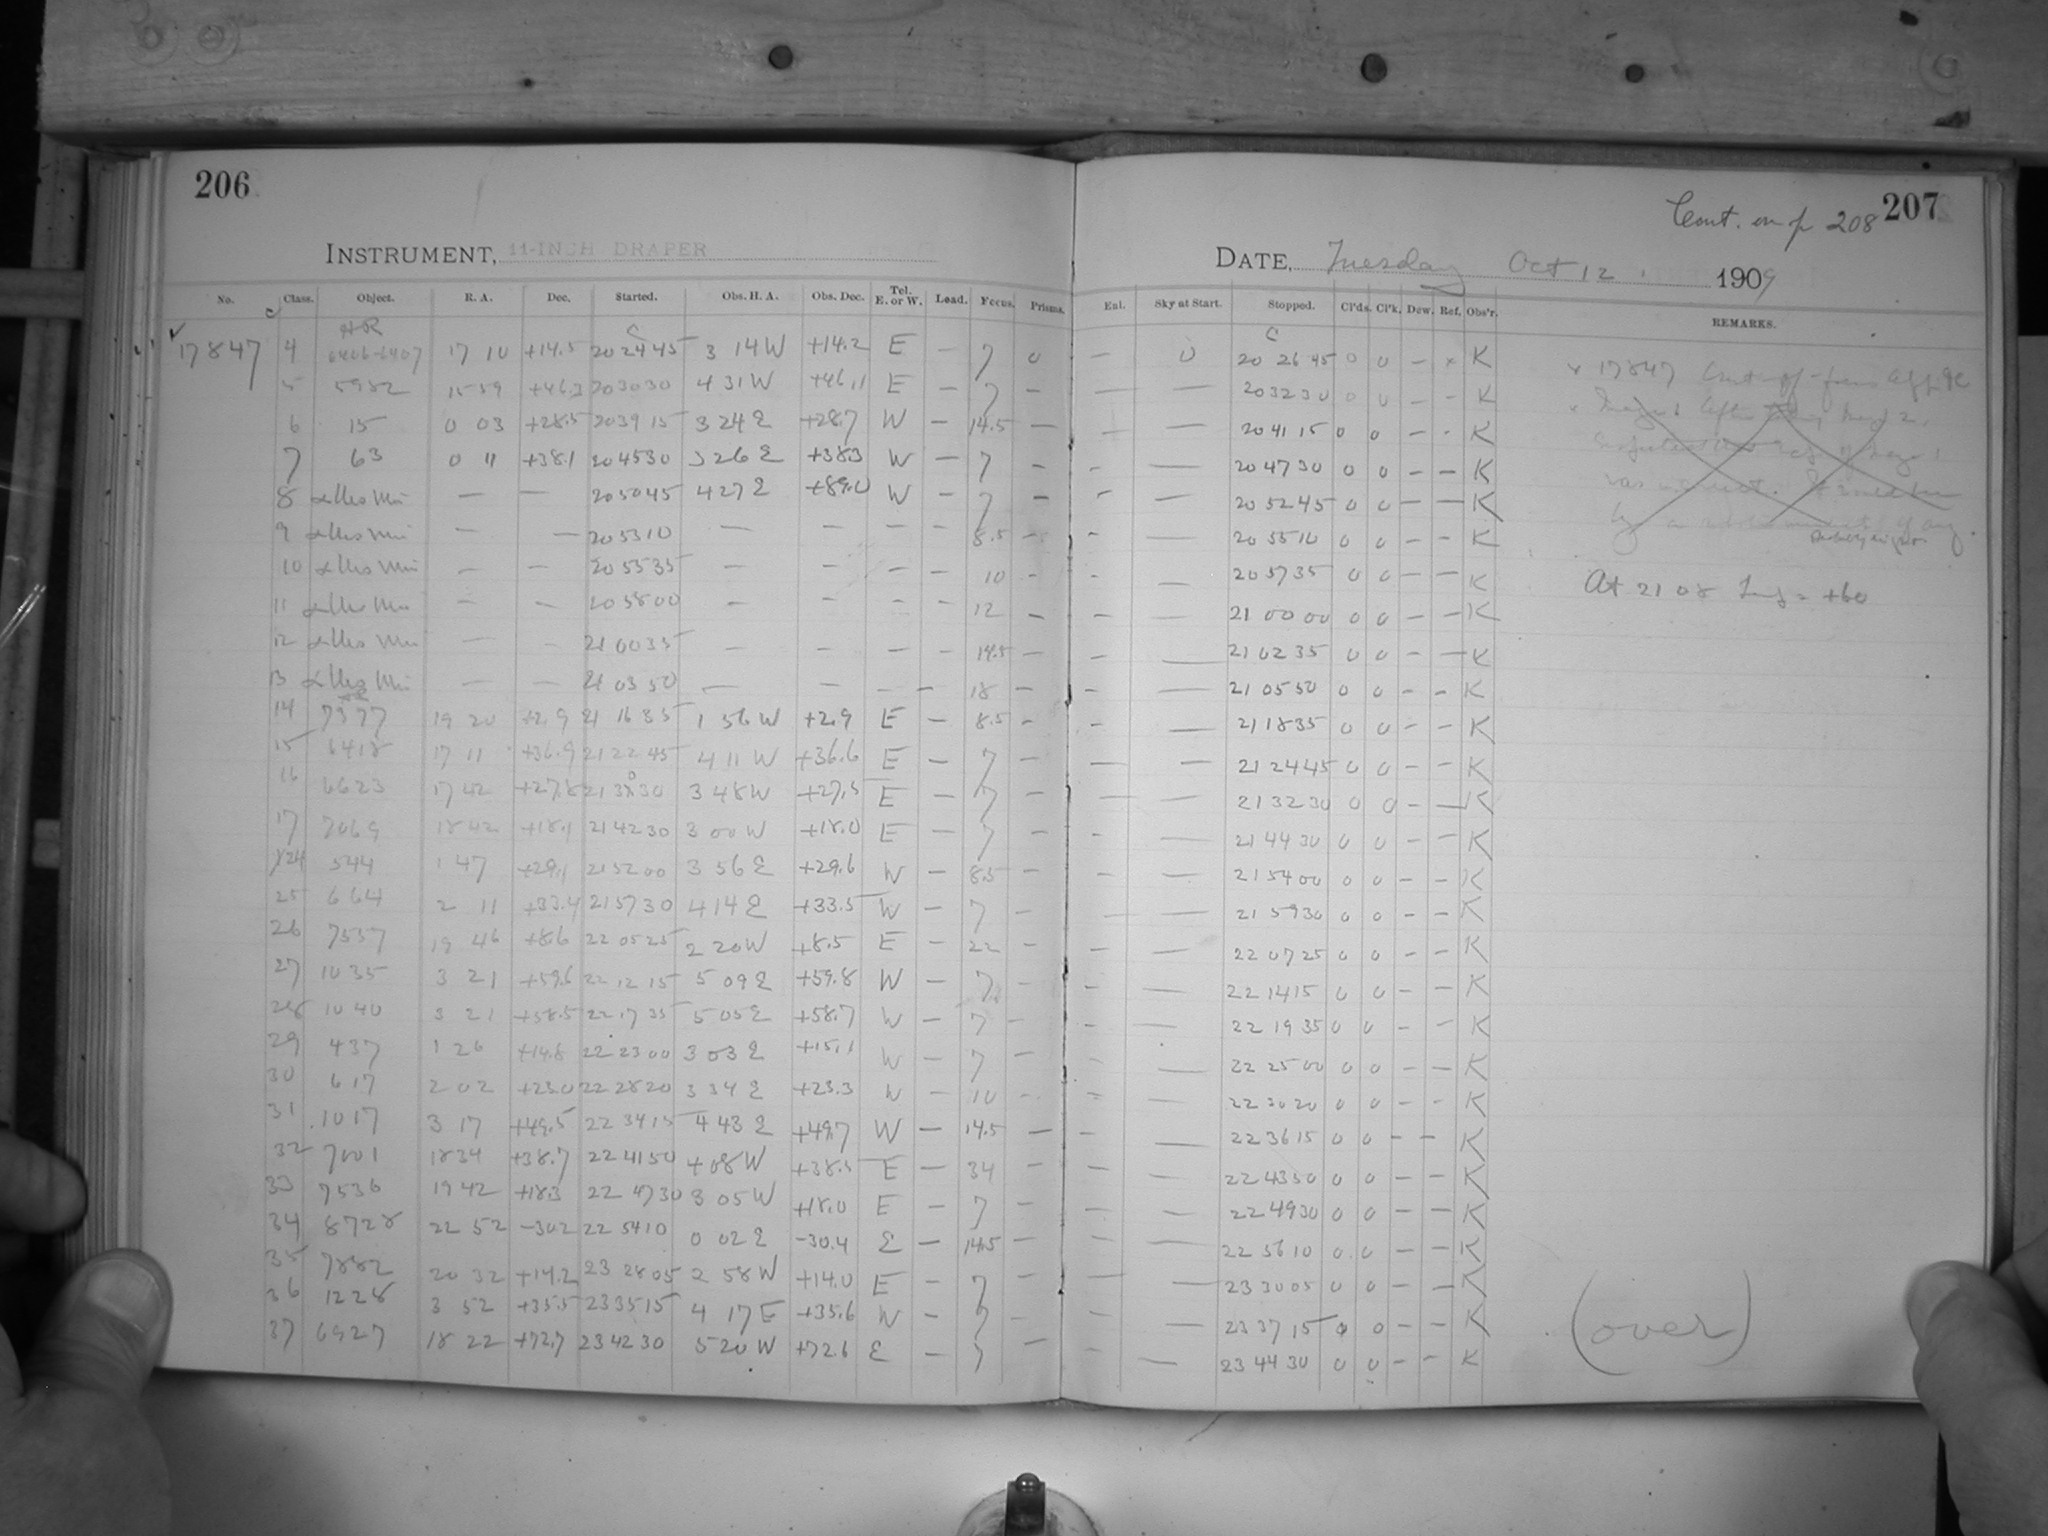 206
INSTRUMENT, 11-INCH DRAPER
No. Class. Object. R. A. Dec. Started. Obs. H. A. Obs. Dec. Tel. E. or W. Load. Focus. Prisms.
HR C
17847 4 6406-6407 17 10 +14.5 20 24 45 3 14 W +14.2 E — 7 0
5 5982 15 59 +46.3 20 30 30 4 31 W +46.1 E — 7 —
6 15 0 03 +28.5 20 39 15 3 24 E +28.7 W — 14.5 —
7 63 0 11 +38.1 20 45 30 3 26 E +38.3 W — 7 —
8 α Urs Min — — 20 50 45 4 27 E +89.0 W — 7 —
9 α Urs Min — — 20 53 10 — — — — 8.5 —
10 α Urs Min — — 20 55 35 — — — — 10 —
11 α Urs Min — — 20 58 00 — — — — 12 —
12 α Urs Min — — 21 00 35 — — — — 14.5 —
13 α Urs Min — — 21 03 50 — — — — 18 —
14 7377 19 20 +2.9 21 16 35 1 56 W +2.9 E — 8.5 —
15 6418 17 11 +36.9 21 22 45 4 11 W +36.6 E — 7 —
16 6623 17 42 +27.8 21 30 30 3 48 W +27.5 E — 7 —
17 7069 18 42 +18.1 21 42 30 3 00 W +18.0 E — 7 —
24 544 1 47 +29.1 21 52 00 3 56 E +29.6 W — 8.5 —
25 664 2 11 +33.4 21 57 30 4 14 E +33.5 W — 7 —
26 7557 19 46 +8.6 22 05 25 2 20 W +8.5 E — 22 —
27 1035 3 21 +59.6 22 12 15 5 09 E +59.8 W — 7 —
28 1040 3 21 +58.5 22 17 35 5 05 E +58.7 W — 7 —
29 437 1 26 +14.8 22 23 00 3 03 E +15.1 W — 7 —
30 617 2 02 +23.0 22 28 20 3 34 E +23.3 W — 10 —
31 1017 3 17 +49.5 22 34 15 4 43 E +49.7 W — 14.5 —
32 7001 18 34 +38.7 22 41 50 4 08 W +38.5 E — 34 —
33 7536 19 42 +18.3 22 47 30 3 05 W +18.0 E — 7 —
34 8728 22 52 -30.2 22 54 10 0 02 E -30.4 E — 14.5 —
35 7882 20 32 +14.2 23 28 05 2 58 W +14.0 E — 7 —
36 1228 3 52 +35.5 23 35 15 4 17 E +35.6 W — 7 —
37 6927 18 22 +72.7 23 42 30 5 20 W +72.6 E — 7 —
Cont. on p 208 207
DATE, Tuesday Oct 12 1909
Enl. Sky at Start. Stopped. Cl'ds. Cl'k. Dew. Ref. Obs'r. REMARKS.
C
— 0 20 26 45 0 0 — x K
— — 20 32 30 0 0 — — K
— — 20 41 15 0 0 — — K
— — 20 47 30 0 0 — — K
— — 20 52 45 0 0 — — K
— — 20 55 10 0 0 — — K
— — 20 57 35 0 0 — — K
— — 21 00 00 0 0 — — K
— — 21 02 35 0 0 — — K
— — 21 05 50 0 0 — — K
— — 21 18 35 0 0 — — K
— — 21 24 45 0 0 — — K
— — 21 32 30 0 0 — — K
— — 21 44 30 0 0 — — K
— — 21 54 00 0 0 — — K
— — 21 59 30 0 0 — — K
— — 22 07 25 0 0 — — K
— — 22 14 15 0 0 — — K
— — 22 19 35 0 0 — — K
— — 22 25 00 0 0 — — K
— — 22 30 20 0 0 — — K
— — 22 36 15 0 0 — — K
— — 22 43 50 0 0 — — K
— — 22 49 30 0 0 — — K
— — 22 56 10 0 0 — — K
— — 23 30 05 0 0 — — K
— — 23 37 15 0 0 — — K
— — 23 44 30 0 0 — — K
x 17847 Cut off from
At 21 08 = +60
(over)